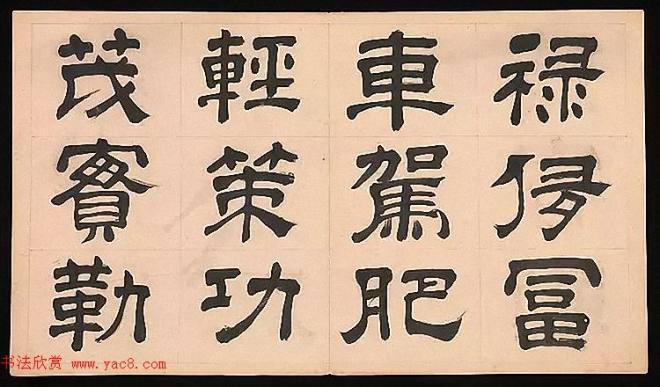 禄侈冨
車駕肥
輕策功
茂實勒
书法欣赏 www.yac8.com